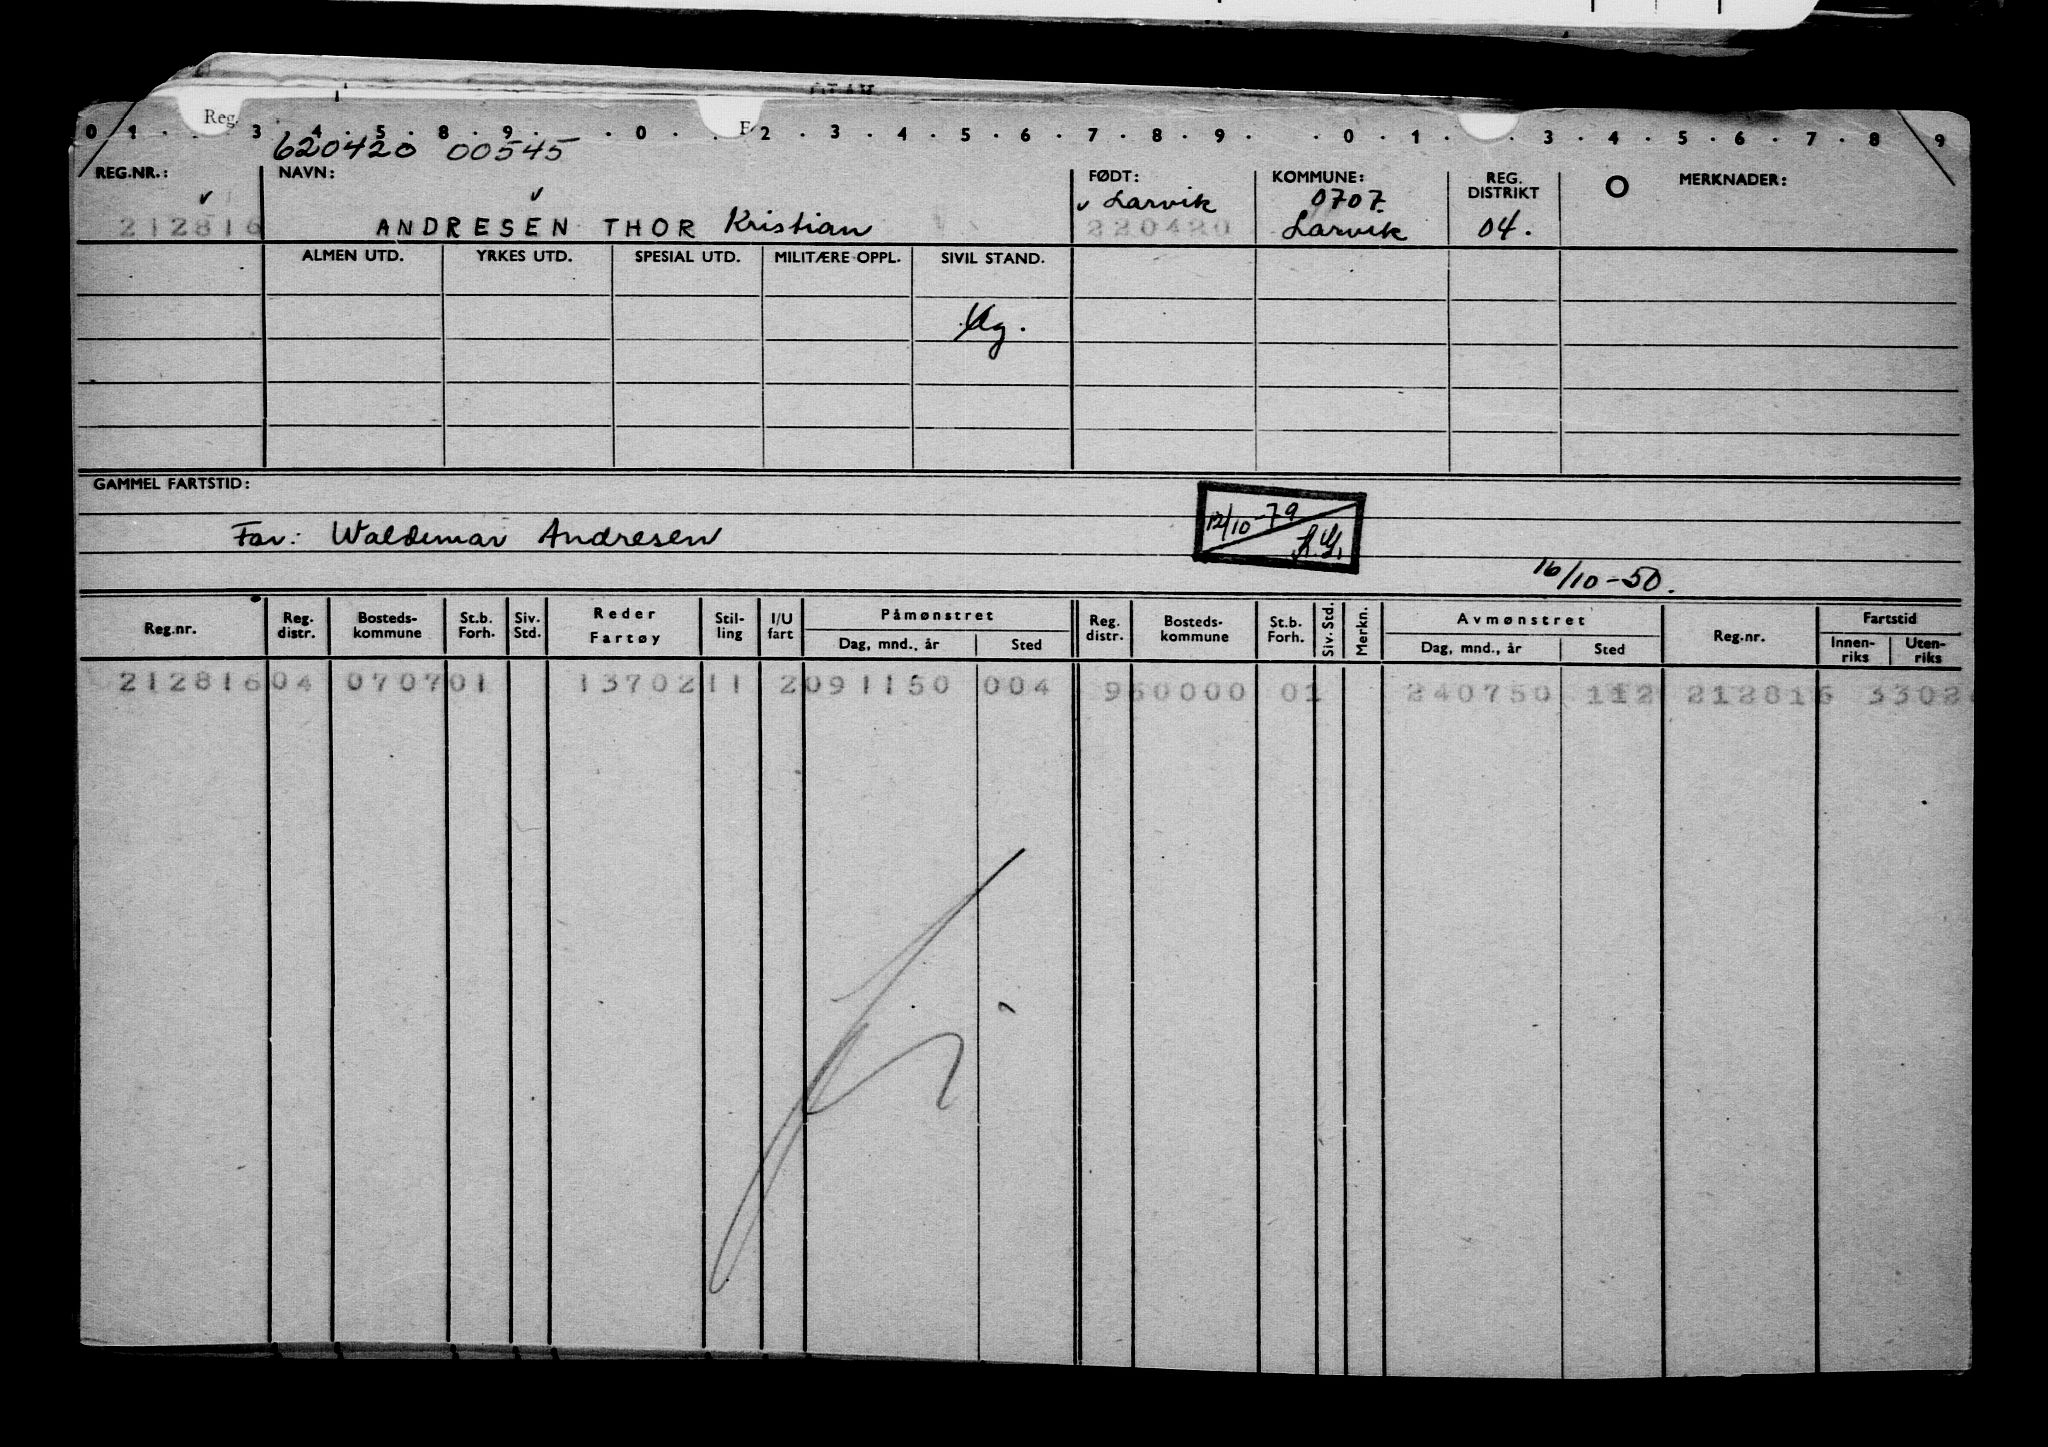 Reg.
0 1 . . 3 . 4 . 5 . 8 . 9 . . 0 . . 2 . 3 . 4 . 5 . 6 . 7 . 8 . 9 . . 0 . 1 . . 3 . 4 . 5 . 6 . 7 . 8 . 9
620420 00545
REG.NR.: NAVN: FØDT: KOMMUNE: REG. DISTRIKT MERKNADER:
v v v Larvik 0707.
212816 ANDRESEN THOR Kristian 220420 Larvik 04.
ALMEN UTD. YRKES UTD. SPESIAL UTD. MILITÆRE OPPL. SIVIL STAND.
Ug.
GAMMEL FARTSTID:
12/10-79
Far: Waldemar Andresen
16/10-50.
Reg.nr. Reg. distr. Bosteds-kommune St.b. Forh. Siv. Std. Reder Fartøy Stil-ling I/U fart Påmønstret Dag, mnd., år Sted Reg. distr. Bosteds-kommune St.b. Forh. Siv. Std. Merkn. Avmønstret Dag, mnd., år Sted Reg.nr. Fartstid Innen-riks Uten-riks
212816 04 0707 01 13702 11 2 091150 004 960000 01 240750 112 212816 3302